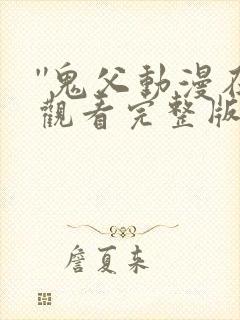 "鬼父動漫在
觀看完整版
詹夏来